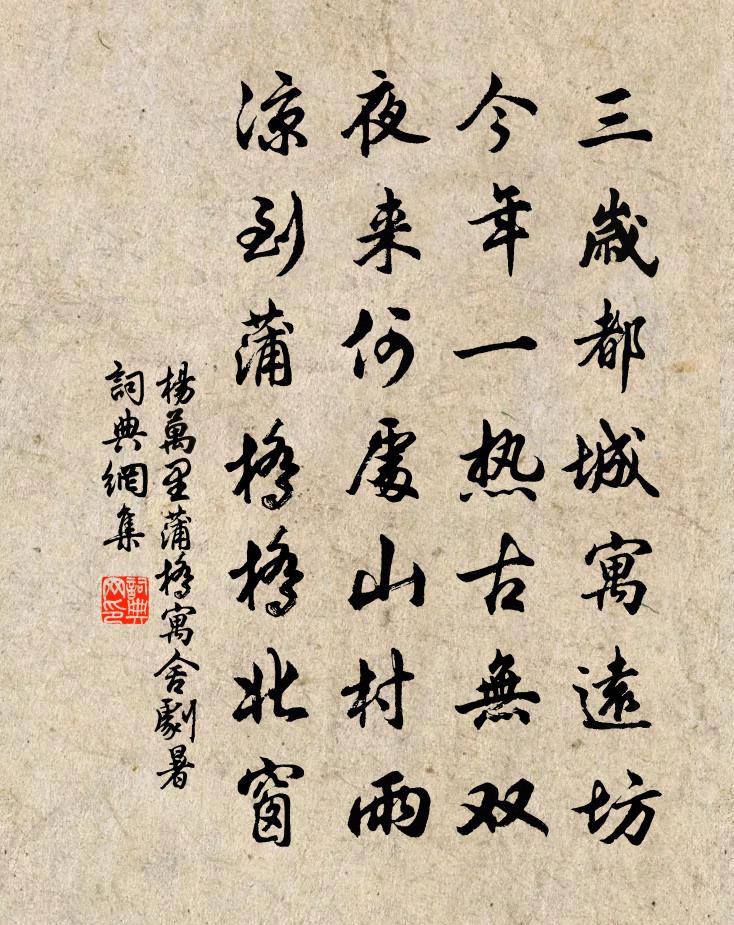 三歲都城寓遠坊
今年一热古無双
夜来何處山村雨
凉到蒲橋橋北窗
楊萬里蒲橋寓舍劇暑
詞典網集
詞典網印